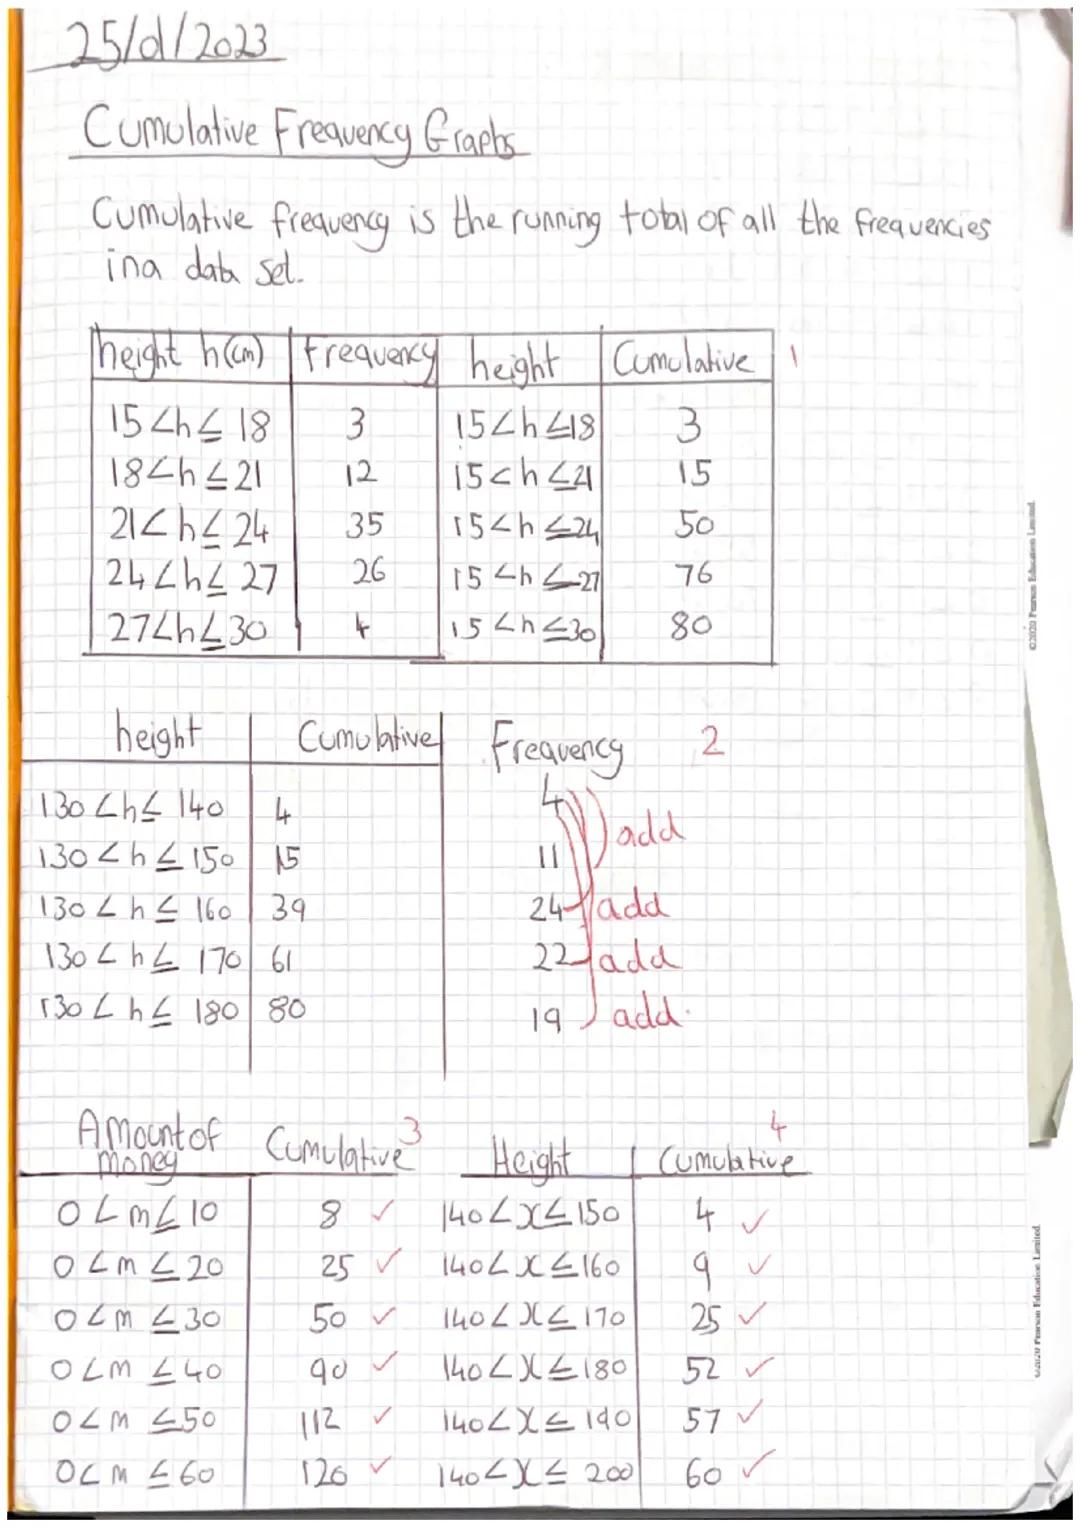 25/01/2023
Cumulative Frequency Graphs
Cumulative frequency is the running total of all the frequencies
in a data set.
height h(cm) frequency height Cumulative 1
15<h≤18 3 15<h≤18 3
18<h≤21 12 15<h≤21 15
21<h≤24 35 15<h≤24 50
24<h≤27 26 15<h≤27 76
27<h≤30 4 15<h≤30 80
height Cumulative Frequency 2
130<h≤140 4 4
130<h≤150 15 11 add
130<h≤160 39 24 add
130<h≤170 61 22 add
130<h≤180 80 19 add
Amount of
money Cumulative 3
0<m≤10 8 ✓
0<m≤20 25 ✓
0<m≤30 50 ✓
0<m≤40 90 ✓
0<m≤50 112 ✓
0<m≤60 126 ✓
Height Cumulative 4
140<x≤150 4 ✓
140<x≤160 9 ✓
140<x≤170 25 ✓
140<x≤180 52 ✓
140<x≤190 57 ✓
140<x≤200 60 ✓
©2020 Pearson Education Limited.
©2020 Pearson Education Limited